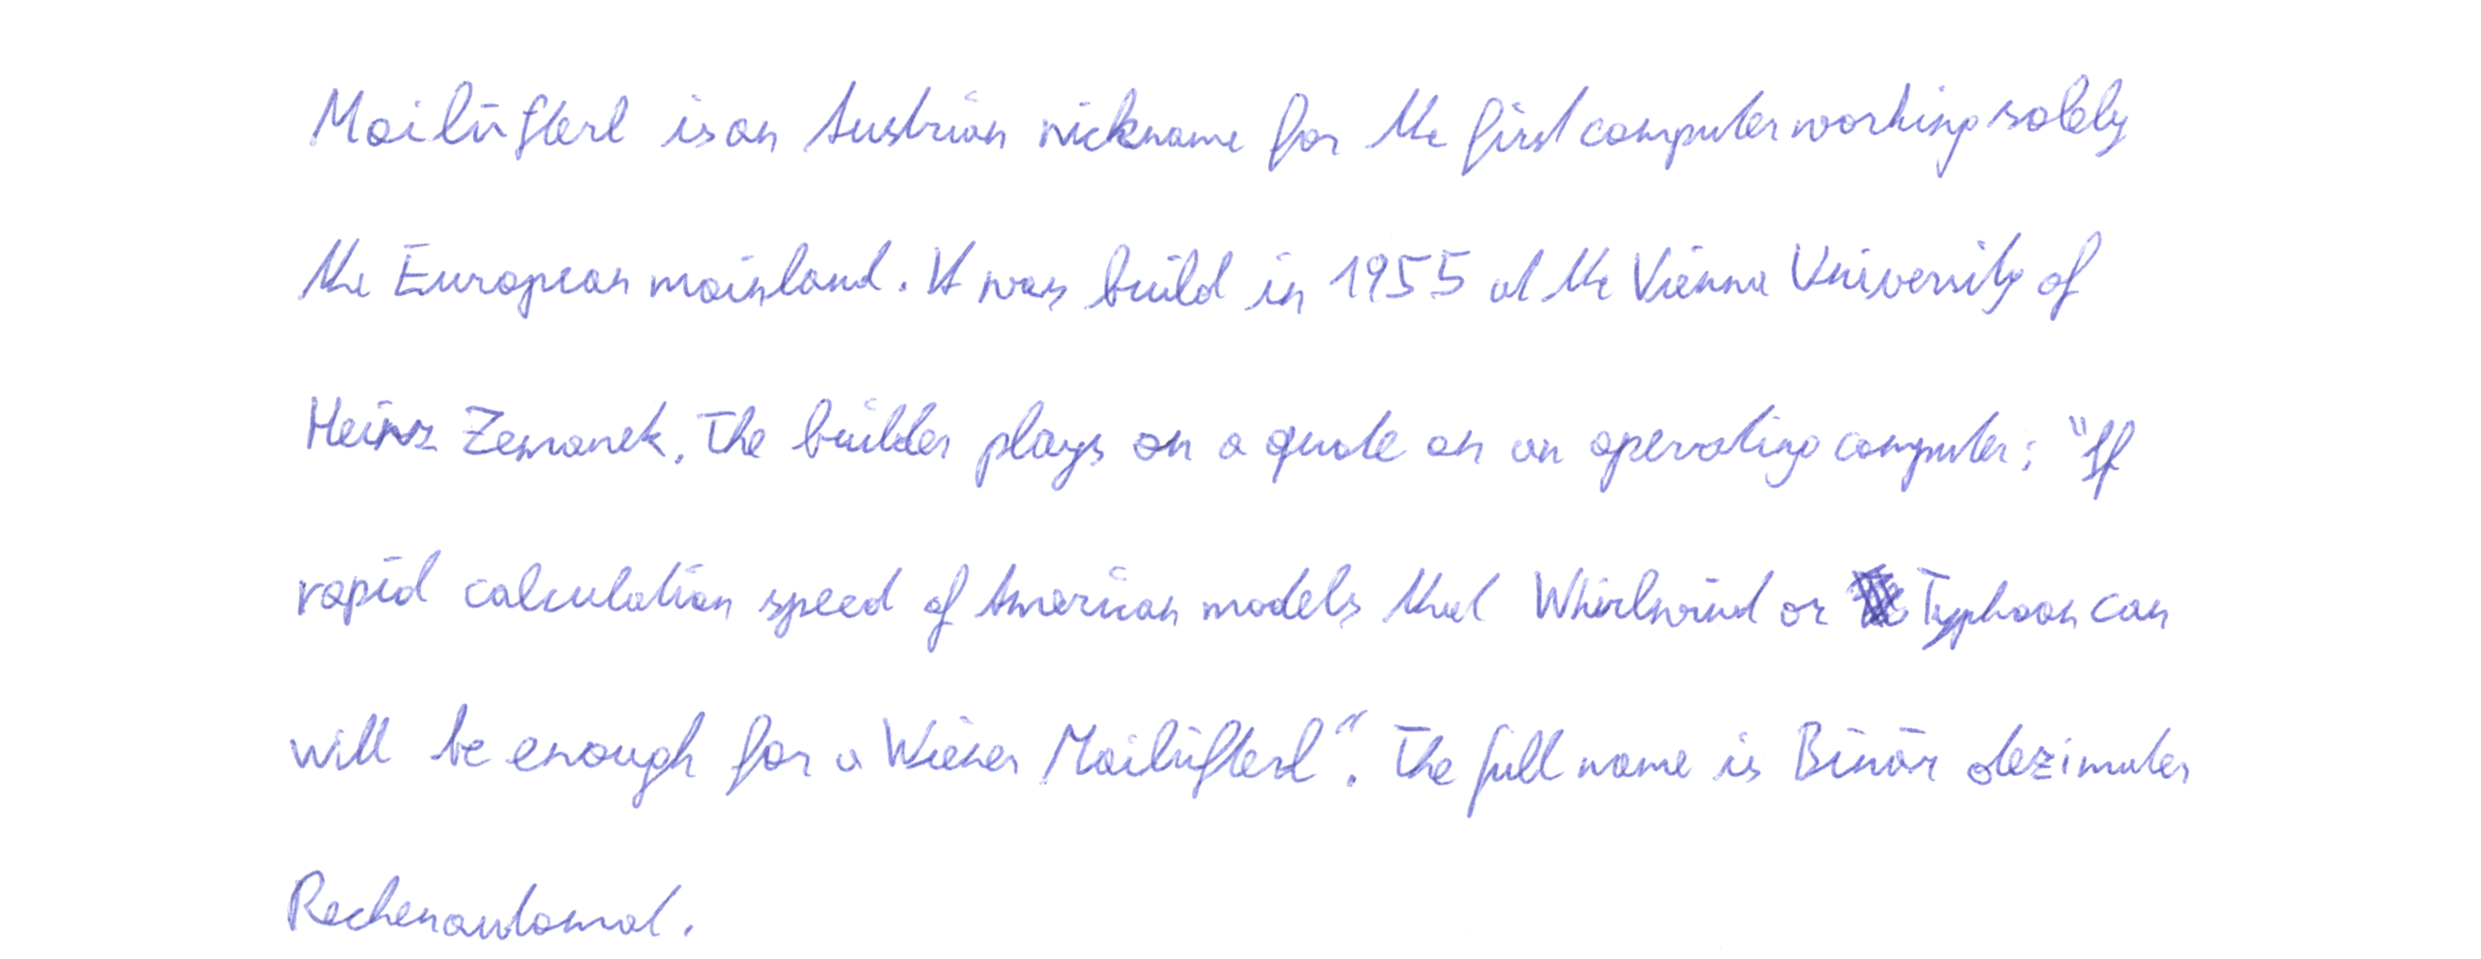 Mailüfterl is an Austrian nickname for the first computer working solely
the European mainland. It was build in 1955 at the Vienna University of
Heinz Zemanek. The builder plays on a quote on an operating computer: "If
rapid calculation speed of American models that Whirlwind or Typhoon can
will be enough for a Wiener Mailüfterl". The full name is Binär dezimaler
Rechenautomat.